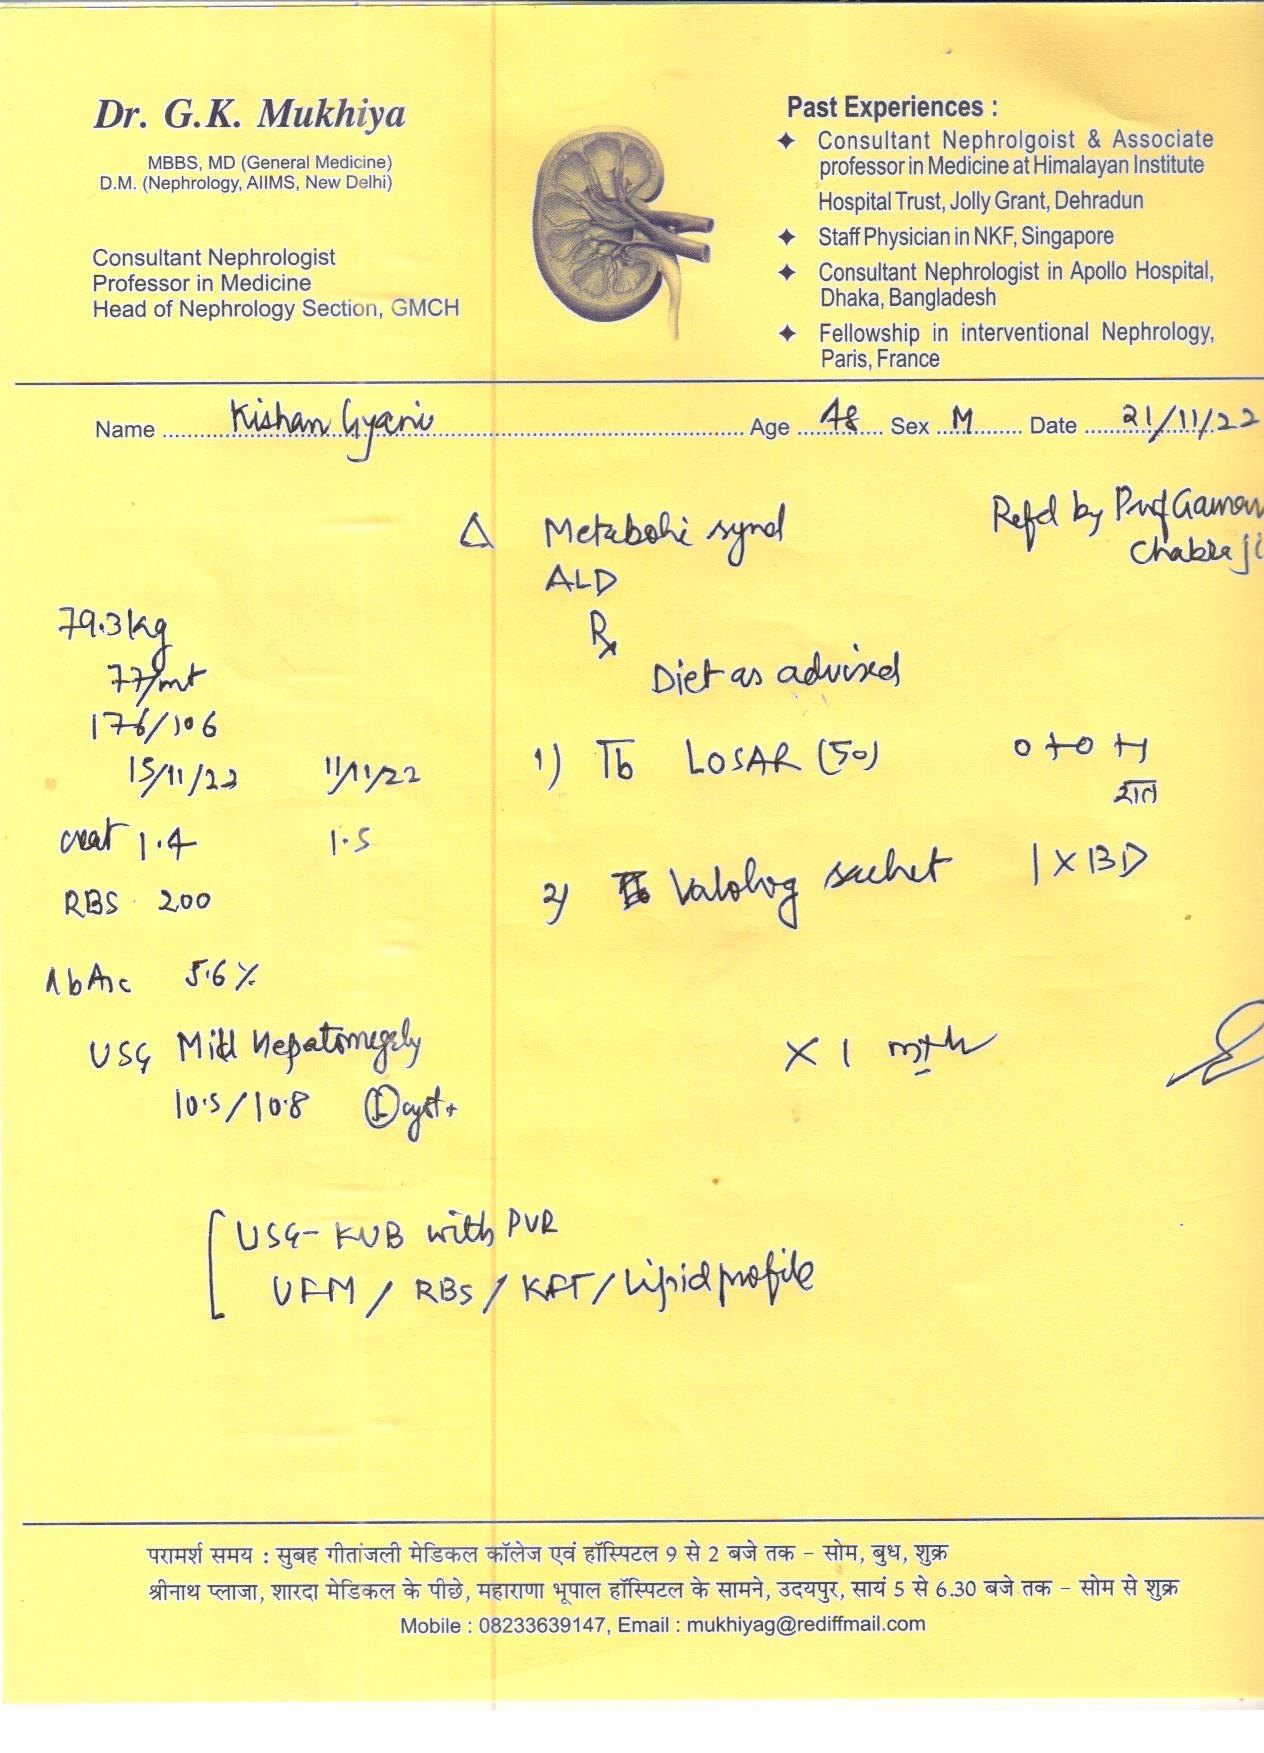 Dr. G.K. Mukhiya
MBBS, MD (General Medicine)
D.M. (Nephrology, AIIMS, New Delhi)
Consultant Nephrologist
Professor in Medicine
Head of Nephrology Section, GMCH
Past Experiences :
✦ Consultant Nephrolgoist & Associate
professor in Medicine at Himalayan Institute
Hospital Trust, Jolly Grant, Dehradun
✦ Staff Physician in NKF, Singapore
✦ Consultant Nephrologist in Apollo Hospital,
Dhaka, Bangladesh
✦ Fellowship in interventional Nephrology,
Paris, France
Name Kishan Gyani Age 48 Sex M Date 21/11/22
Refd by Prof Gaurav
Chabra ji
Δ Metabolic synd
ALD
79.3 kg
77/mt
176/106
15/11/22 11/11/22
creat 1.4 1.5
RBS 200
HbA1c 5.6 %
USG Mild Hepatomegaly
10.5/10.8 cyst+
Rx
Diet as advised
1) Tb LOSAR (50)
रात
2) sachet 1 X BD
X 1 mth
USG-KUB with PVR
UFM / RBS / KFT / Lipid profile
परामर्श समय : सुबह गीतांजली मेडिकल कॉलेज एवं हॉस्पिटल 9 से 2 बजे तक – सोम, बुध, शुक्र
श्रीनाथ प्लाजा, शारदा मेडिकल के पीछे, महाराणा भूपाल हॉस्पिटल के सामने, उदयपुर, सायं 5 से 6.30 बजे तक – सोम से शुक्र
Mobile : 08233639147, Email : mukhiyag@rediffmail.com